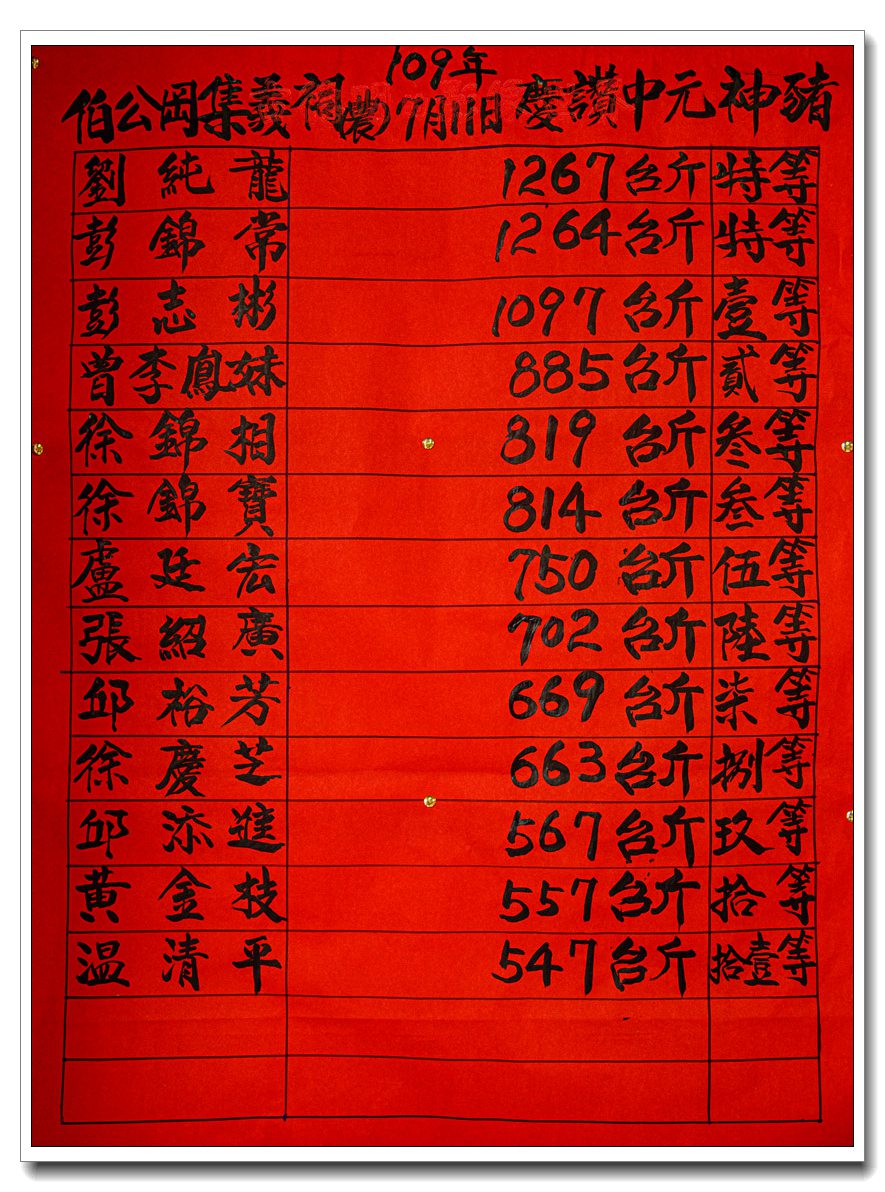 109年
伯公岡集義祠(農)7月11日慶讚中元神豬
劉純龍 1267台斤 特等
彭錦常 1264台斤 特等
彭志彬 1097台斤 壹等
曾李鳳妹 885台斤 貳等
徐錦相 819台斤 叁等
徐錦寶 814台斤 叁等
盧廷宏 750台斤 伍等
張紹廣 702台斤 陸等
邱裕芳 669台斤 柒等
徐慶芝 663台斤 捌等
邱添進 567台斤 玖等
黃金枝 557台斤 拾等
温清平 547台斤 拾壹等